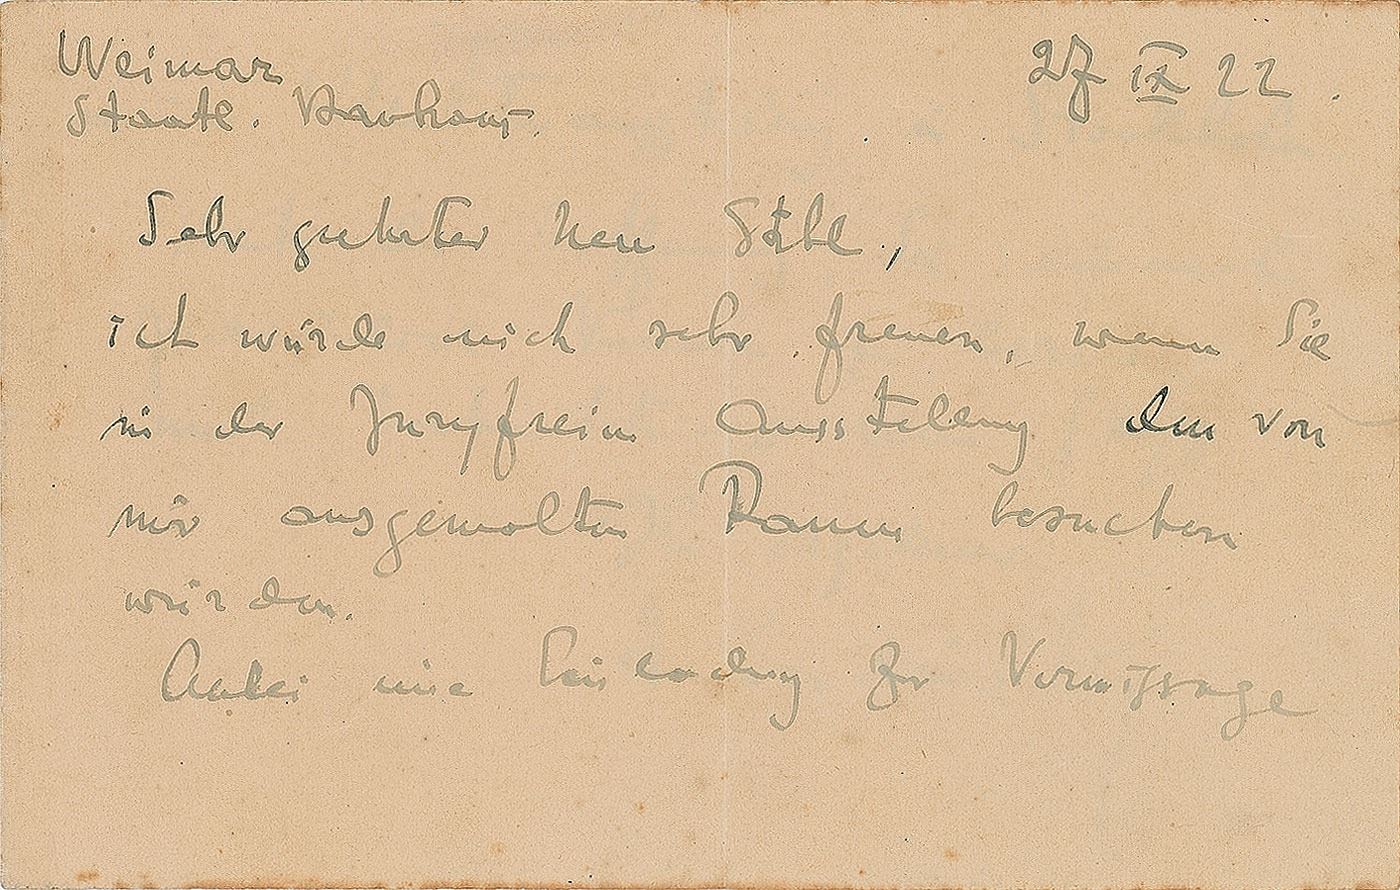 Weimar 27 IX 22.
Staatl. Bauhaus.
Sehr geehrter Herr Stahl,
ich würde mich sehr freuen, wenn Sie
in der Juryfreien Ausstellung den von
mir ausgemalten Raum besuchen
würden.
Anbei eine Einladung zur Vernissage